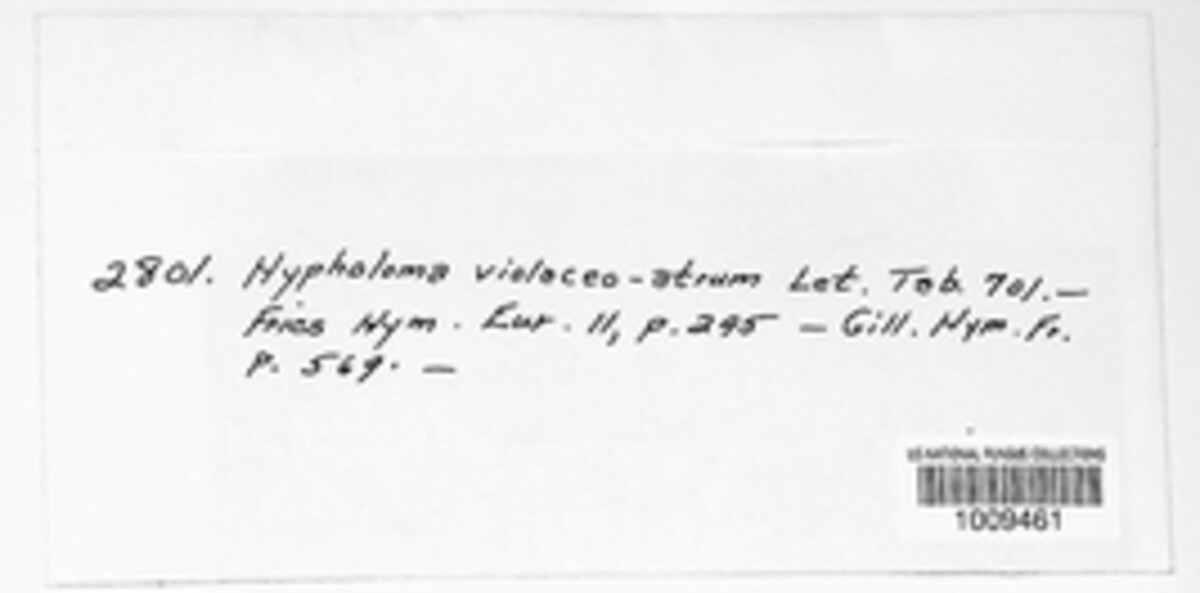 2801. Hypholoma violaceo-atrum Let. Tab. 701. —
Fries Hym. Eur. 11, p. 295 — Gill. Hym. Fr.
p. 569. —
US NATIONAL FUNGUS COLLECTIONS
1009461